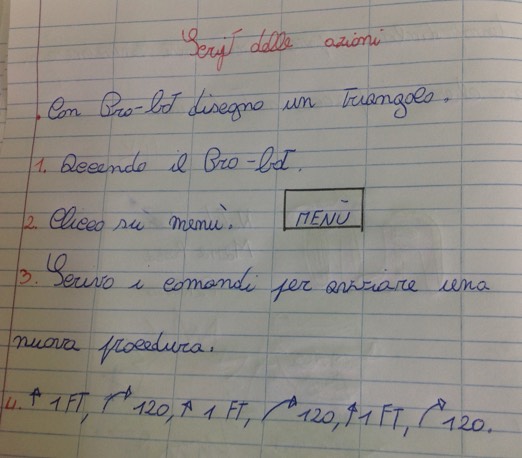 Script delle azioni
. Con Bro-bot disegno un triangolo.
1. Accendo il Bro-bot.
2. Clicco su menù. MENÙ
3. Scrivo i comandi per avviare una
nuova procedura.
4. ↑ 1 FT, ↱ 120, ↑ 1 FT, ↱ 120, ↑ 1 FT, ↱ 120.